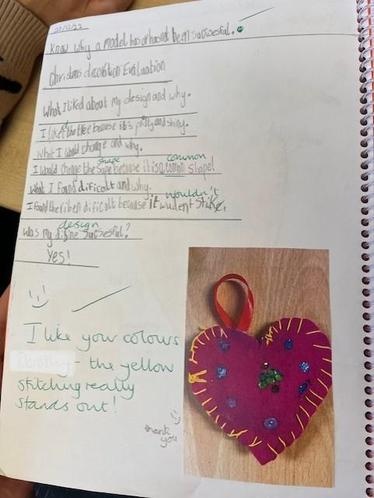 Know why a model has or has not been sucsesful.
christmas decoration Evaluation
What I liked about my design and why.
I liked the tree because it's pretty and shiny.
What I would change and why.
shape common
I would change the sape because it is a comon shape!
What I found dificalt and why.
wouldn't
I found the riben dificalt because it wudent stike.
design
Was my disine sucsesful?
Yes!
I like your colours
- the yellow
stitching really
stands out!
thank
you